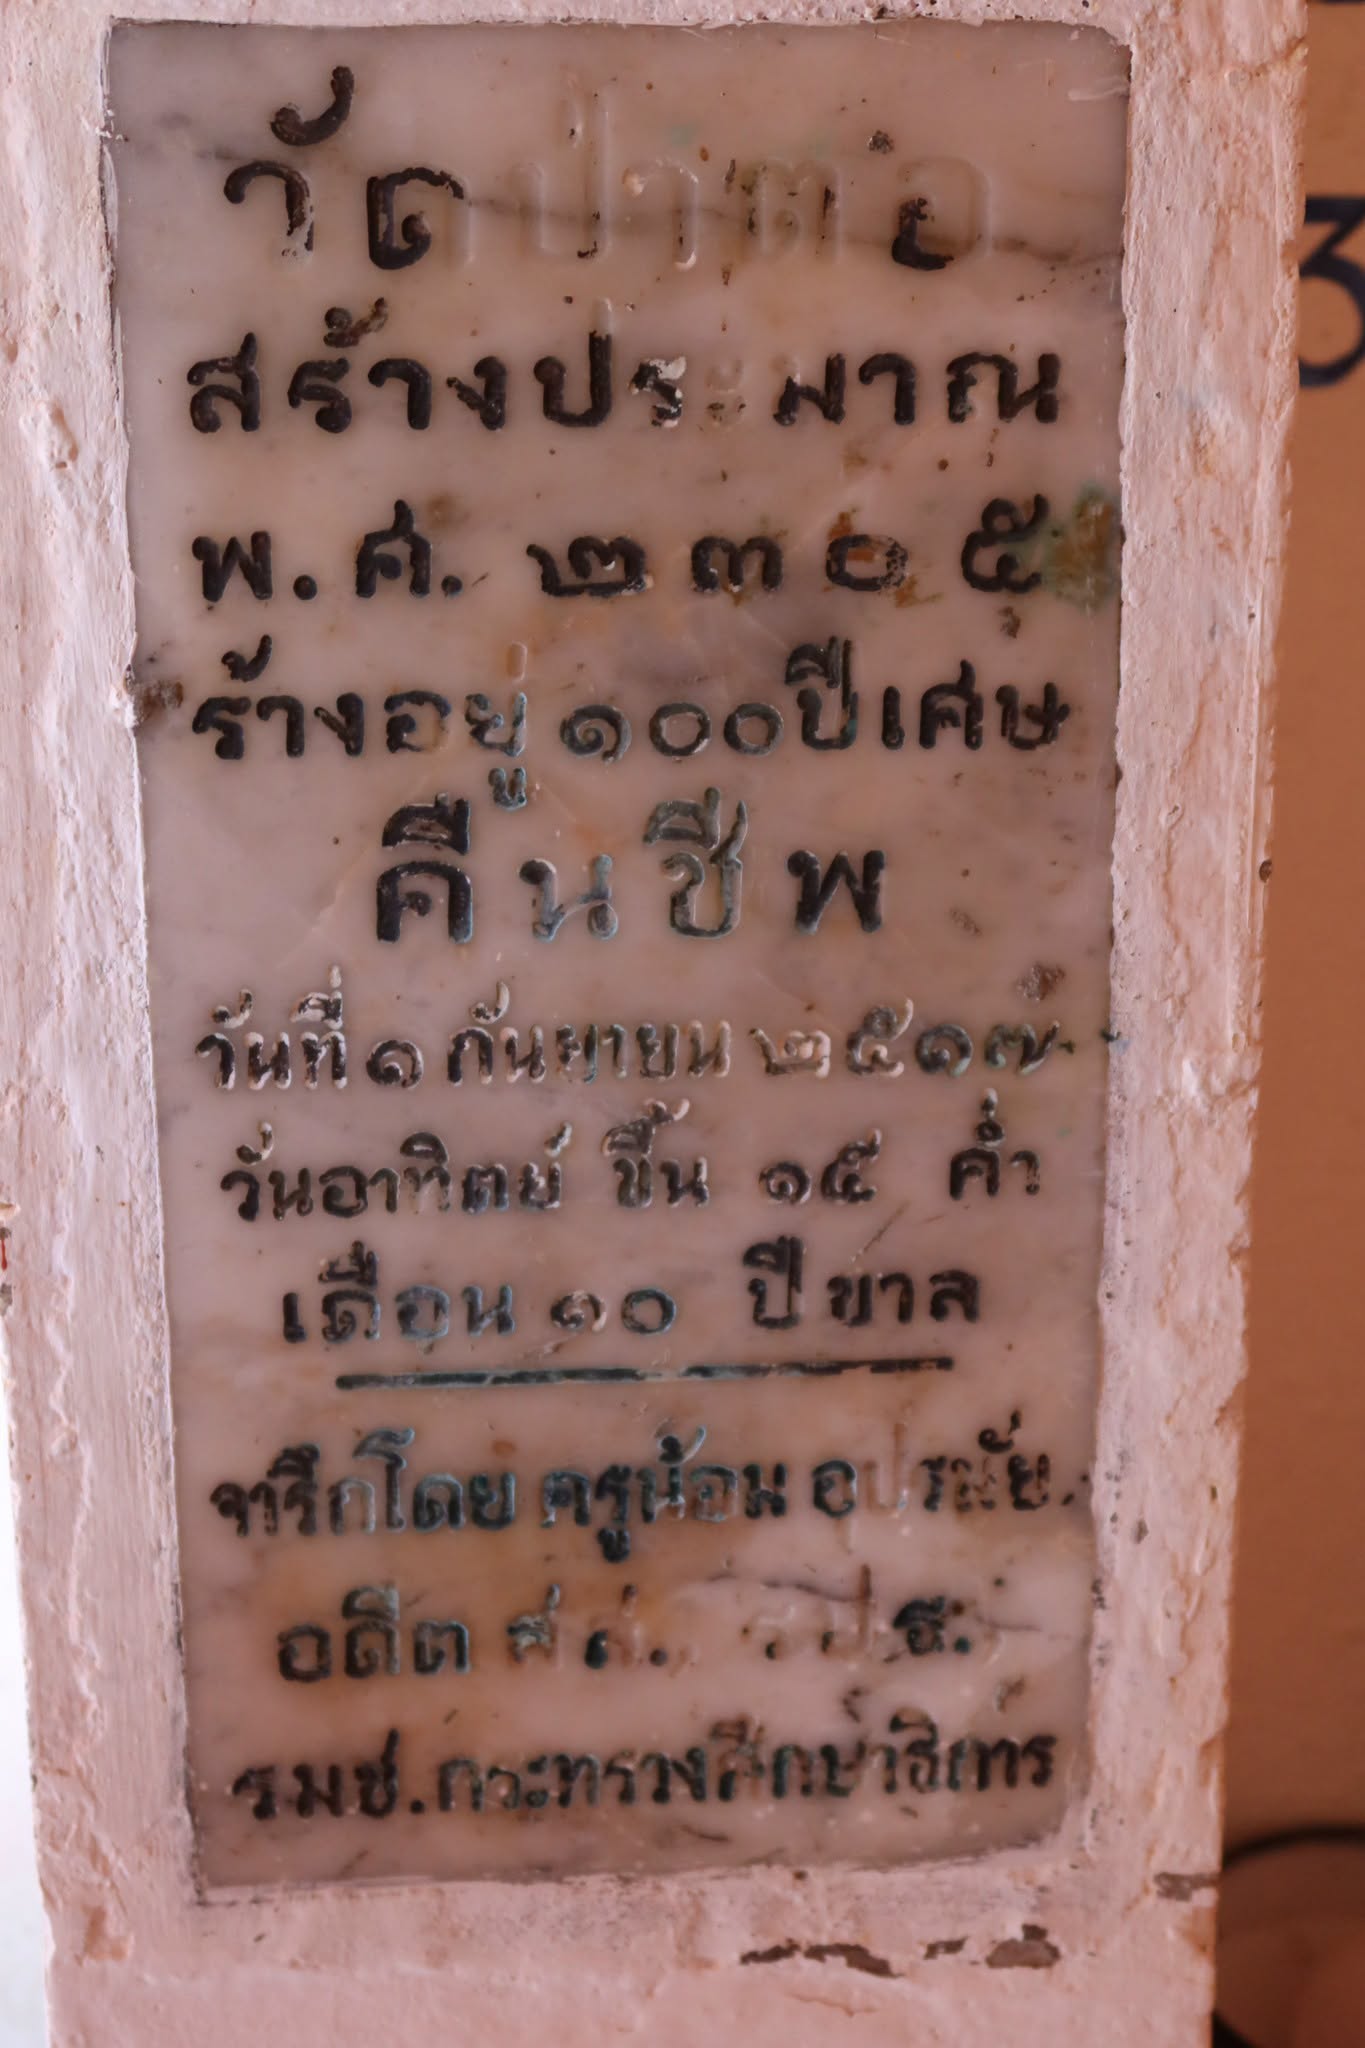 วัดป่าตอ
สร้างประมาณ
พ.ศ. ๒๓๐๕
ร้างอยู่ ๑๐๐ ปีเศษ
คืนชีพ
วันที่ ๑ กันยายน ๒๕๑๗
วันอาทิตย์ ขึ้น ๑๕ ค่ำ
เดือน ๑๐ ปีขาล
จารึกโดย ครูน้อม อุปรมัย
อดีต ส.ส. นปธ.
รมช.กระทรวงศึกษาธิการ